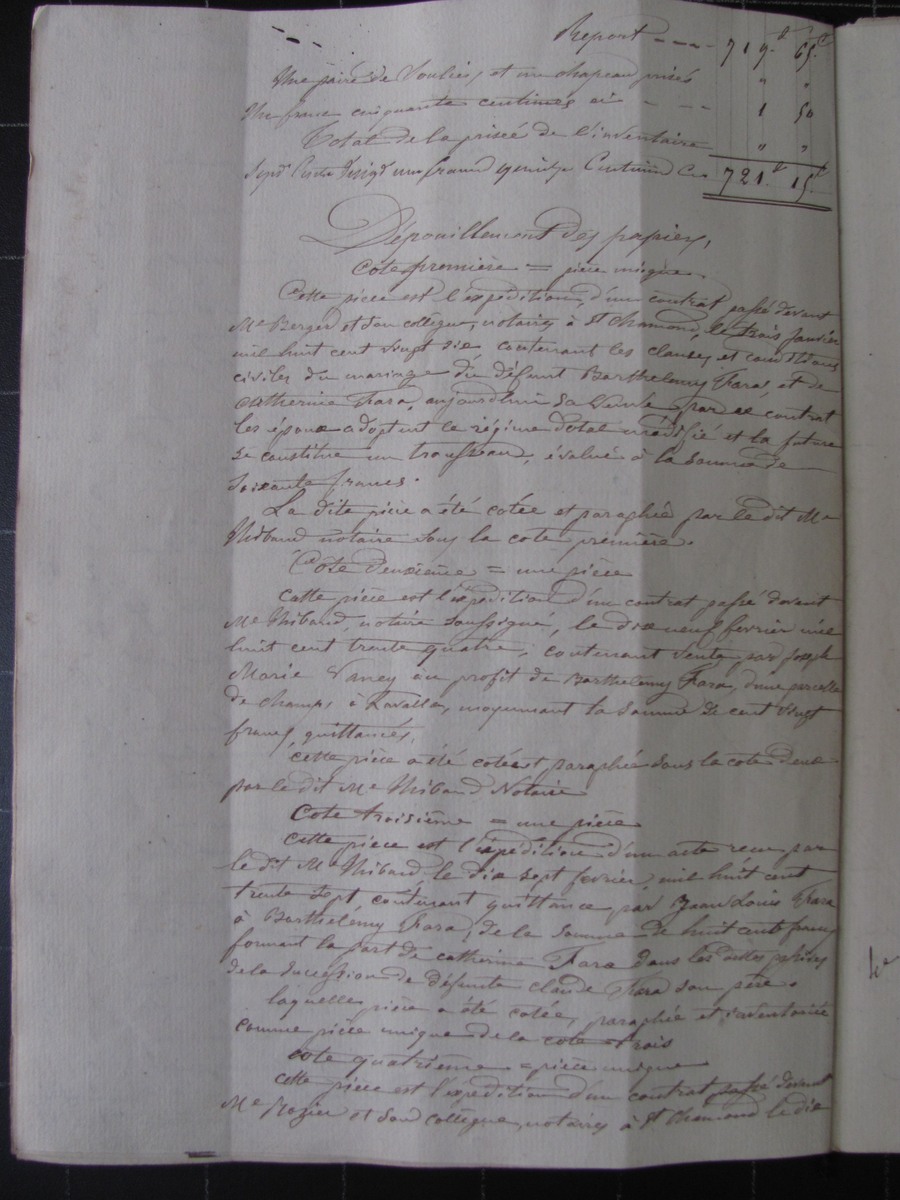 Report ---- 719.f 65.c
Une paire de Souliers et un chapeau prisés " "
Un franc cinquante centimes ci - - - 1 50
Total de la prisée de l'inventaire " "
Sept Cents Vingt un francs quinze Centimes Ci 721.f 15.c
Dépouillement des papiers,
Cote première = pièce unique.
Cette pièce est l'expédition, d'un contrat passé devant
Me Berger et son collègue, notaires à St Chamond, le trois janvier
mil huit cent vingt six contenant les clauses et conditions
civiles du mariage du défunt Barthelemy Fara, et de
Catherine Fara, aujourd'hui sa veuve, par ce contrat
les époux adoptent le régime dotal modifié et la future
se constitue un trousseau, évalué à la somme de
soixante francs.
La dite pièce a été cotée et paraphée par le dit Me
Thibaud notaire sous la cote première.
Cote deuxième = une pièce
cette pièce est l'expédition d'un contrat passé devant
Me Thibaud, notaire soussigné, le dix neuf fevrier mil
huit cent trente quatre, contenant vente par Joseph
Marie Vaney au profit de Barthelemy Fara, d'une parcelle
de champs, à Lavalla, moyennant la somme de cent vingt
francs, quittancés.
Cette pièce a été cotée et paraphée sous la cote deux
par le dit Me Thibaud Notaire
Cote troisième = une pièce
Cette pièce est l'expédition d'un acte reçu par
le dit Me Thibaud le dix sept fevrier mil huit cent
trente sept, contenant quittance par Jean Louis Fara
à Barthélémy Fara, de la somme de huit cent francs
formant la part de catherine Fara dans les dettes passives
de la succession de défunte claude Fara son père.
laquelle pièce a été cotée, paraphée et inventoriée
comme pièce unique de la cote trois
cote quatrième = pièce unique
cette pièce est l'expédition d'un contrat passé devant
Me Rozier et son collègue, notaires à St Chamond le dix